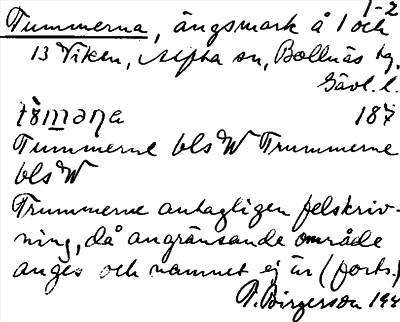 1-2
Tummerna, ängsmark å 1 och
13 Viken, Alfta sn, Bollnäs tg,
Gävl. l.
187
Tummerne bls W Trummerne
bls W
Trummerne antagligen felskriv-
ning, då angränsande område
anges och namnet ej är (forts.)
P. Birgerson